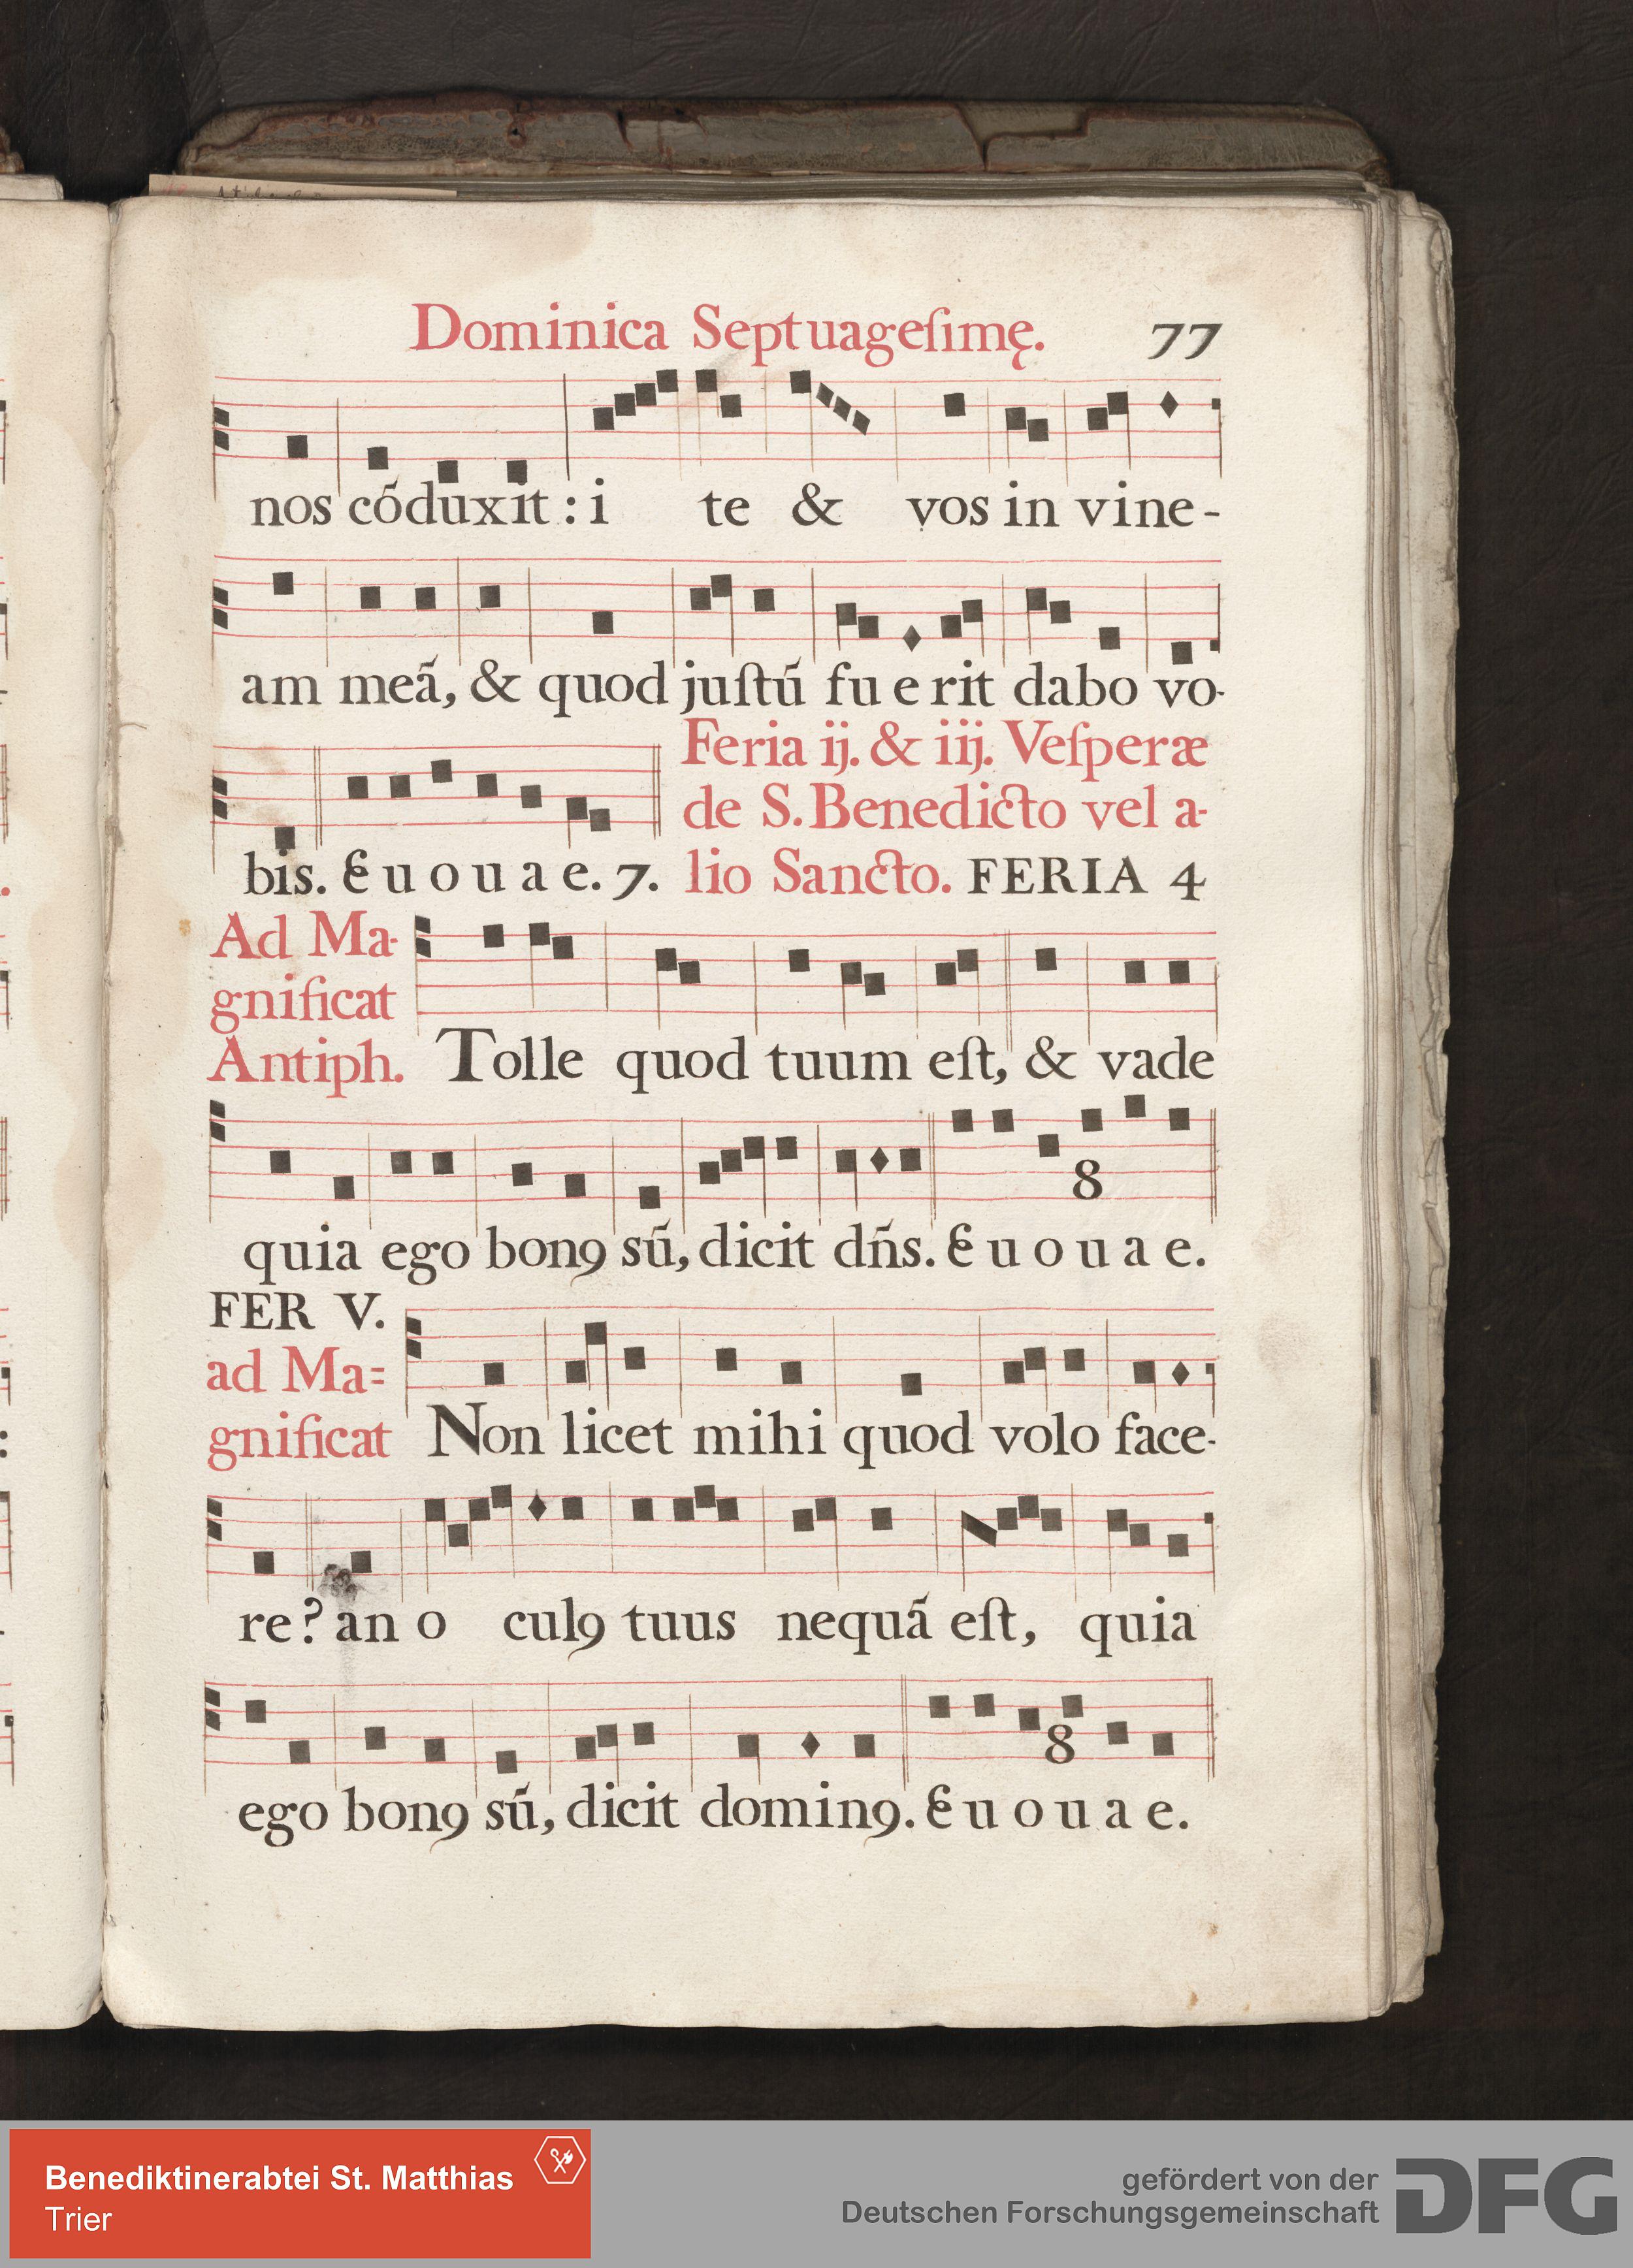 Dominica Septuageſimę. 77
nos cõduxit : i te & vos in vine-
am meã, & quod juſtũ fuerit dabo vo-
Feria ij. & iij. Veſperæ
de S. Benedicto vel a-
bis. Euouae. 7. lio Sancto. FERIA 4
Ad Ma-
gnificat
Antiph. Tolle quod tuum eſt, & vade
8
quia ego bonꝯ sũ, dicit dn̄s. Euouae.
FER V.
ad Ma=
gnificat Non licet mihi quod volo face-
re? an o culꝯ tuus nequã eſt, quia
8
ego bonꝯ sũ, dicit dominꝯ. Euouae.
Benediktinerabtei St. Matthias
Trier
gefördert von der
Deutschen Forschungsgemeinschaft
DFG